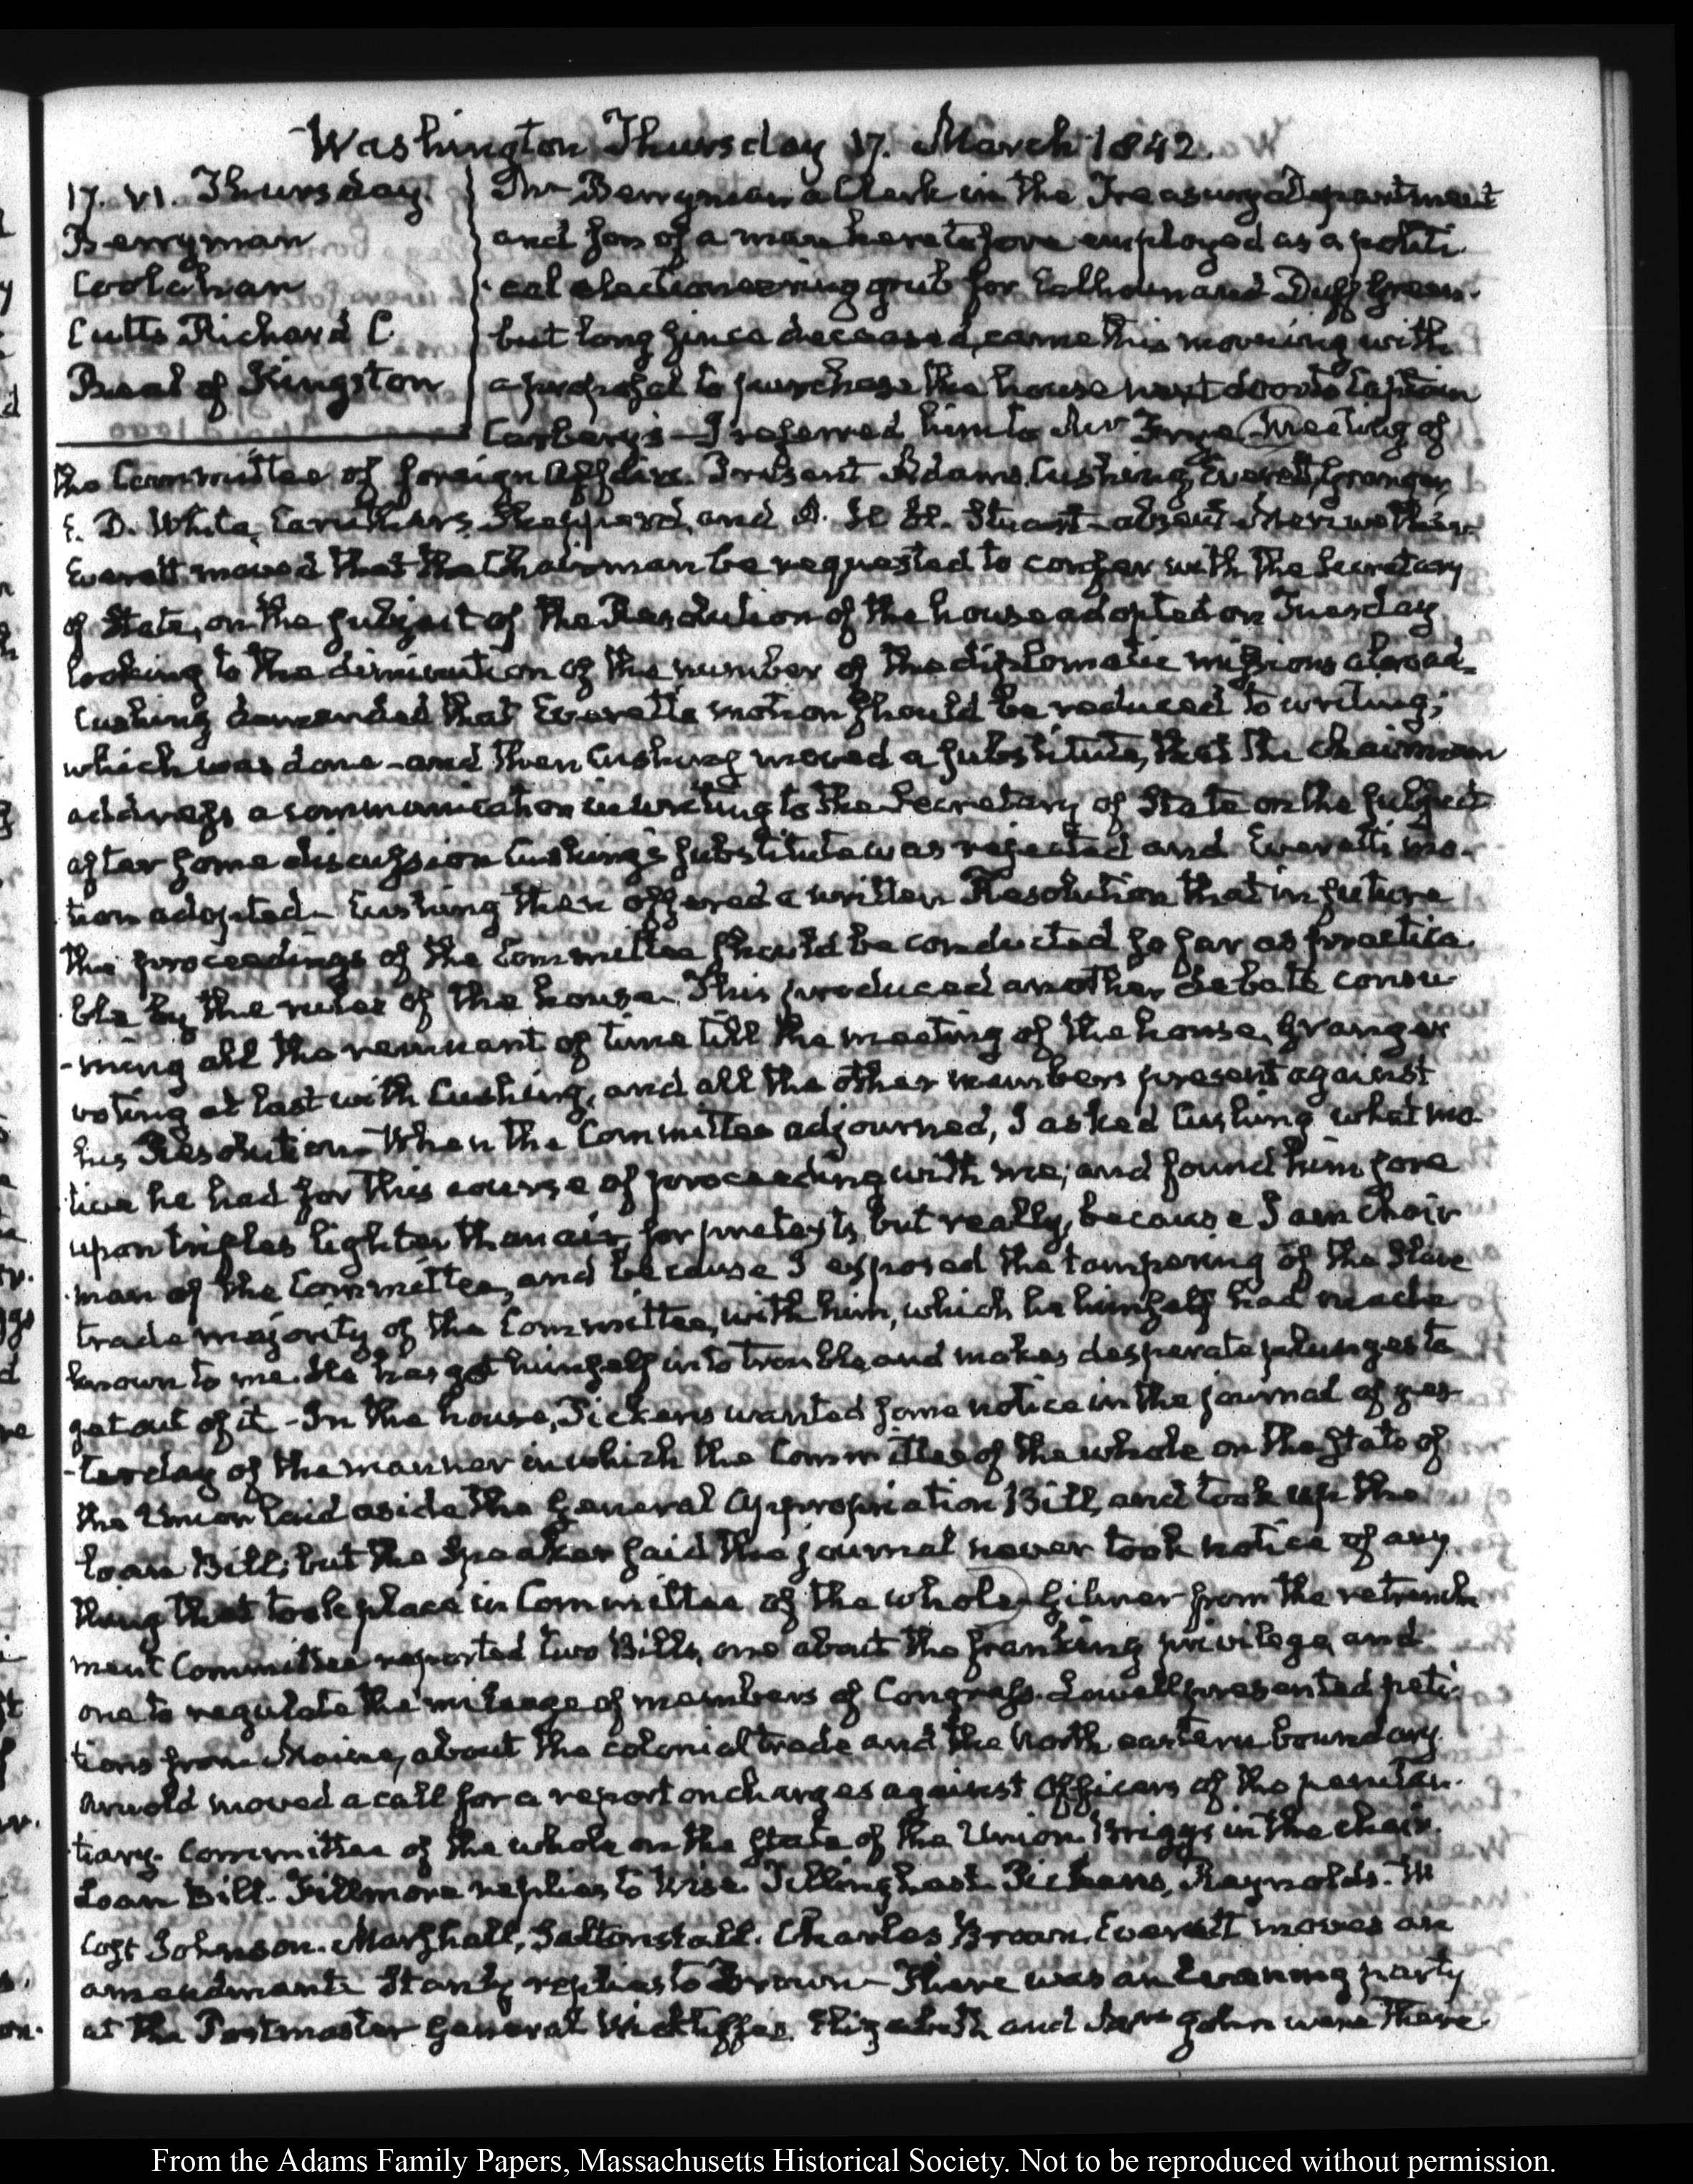 Washington Thursday 17. March 1842.
17. VI. Thursday.
Berryman
Coolahan
Cutts Richard C.
Beal of Kingston
Mr Berryman a Clerk in the Treasury Department
and son of a man heretofore employed as a politi
cal electioneering for Calhoun and Duff Green.
but long since deceased, came this morning with
a proposal to purchase the house next door to Captain
Carbery's. I referred him to Mr Frye Meeting of
the Committee of foreign Affairs. Present Adams, Cushing, Everett, Granger,
E. D. White, Caruthers, Shepperd, and A. H. H. Stuart absent Meriwether.
Everett moved that the Chairman be requested to confer with the Secretary
of State, on the subject of the Resolution of the house adopted on Tuesday
looking to the diminution of the number of the diplomatic missions abroad—
Cushing demanded that Everett's motion should be reduced to writing;
which was done—and then Cushing moved a substitute, that the chairman
address a communication in writing to the Secretary of State on the subject
after some discussion Cushing's substitute was rejected and Everett's mo-
tion adopted— Cushing then offered a written Resolution that in future
the proceedings of the Committee should be conducted so far as practica
ble by the rules of the house. This produced another debate consu
-ming all the remnant of time till the meeting of the house, Granger
voting at last with Cushing, and all the other members present against
his Resolution— When the Committee adjourned, I asked Cushing what mo-
tive he had for this course of proceeding with me; and found him sore
upon trifles lighter than air for pretexts, but really, because I am Chair
man of the Committee, and because I exposed the tampering of the Slave
trade majority of the Committee, with him, which he himself had made
known to me. He has got himself into trouble, and makes desperate plunges to
get out of it - In the house, Pickens wanted some notice in the journal of yes-
-terday of the manner in which the Committee of the whole on the State of
the Union laid aside the General Appropriation Bill, and took up the
Loan Bill; but the Speaker said the journal never took notice of any
thing that took place in Committee of the whole— Gilmer from the retrench
ment Committee reported two Bills, one about the franking privilege, and
one to regulate the mileage of members of Congress. Lowell presented peti-
tions from Maine, about the colonial trade and the North eastern boundary.
Arnold moved a call for a report on charges against Officers of the peniten-
tiary. Committee of the whole on the state of the Union. Briggs in the chair.
Loan Bill. Fillmore replies to Wise. Tillinghast. Pickens, Reynolds. W
Cost Johnson. Marshall, Saltonstall. Charles Brown. Everett moves an
amendment. Stanly replies to Brown— There was an Evening party
at the Postmaster General Wickliffe's. Elizabeth and Mrs John were there.
From the Adams Family Papers, Massachusetts Historical Society. Not to be reproduced without permission.